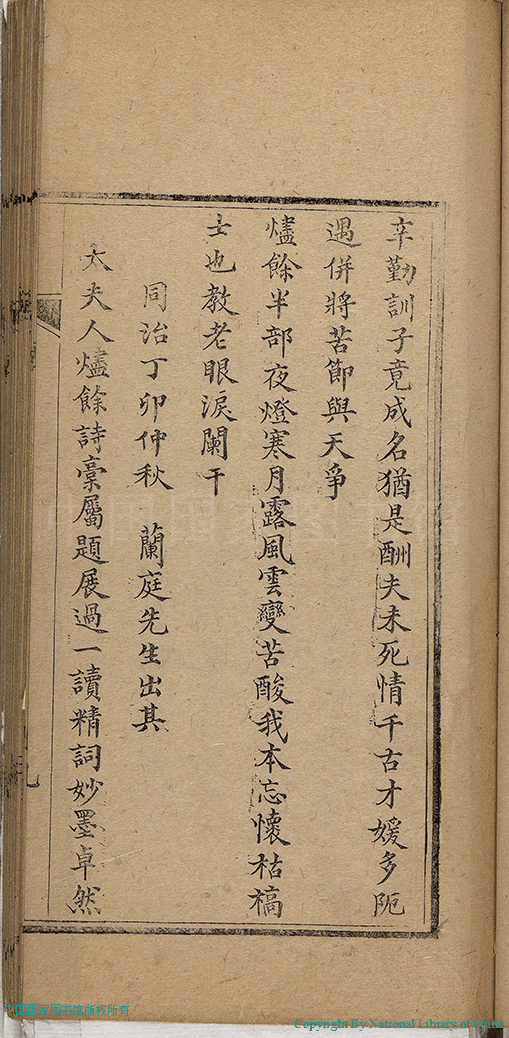 辛勤訓子竟成名猶是酬夫未死情千古才媛多阨
遇併將苦節與天爭
燼餘半部夜燈寒月露風雲變苦酸我本忘懷枯槁
士也教老眼淚闌干
同治丁卯仲秋 蘭庭先生出其
太夫人燼餘詩稾屬題展過一讀精詞妙墨卓然
中国国家图书馆版权所有
Copyright By National Library of China